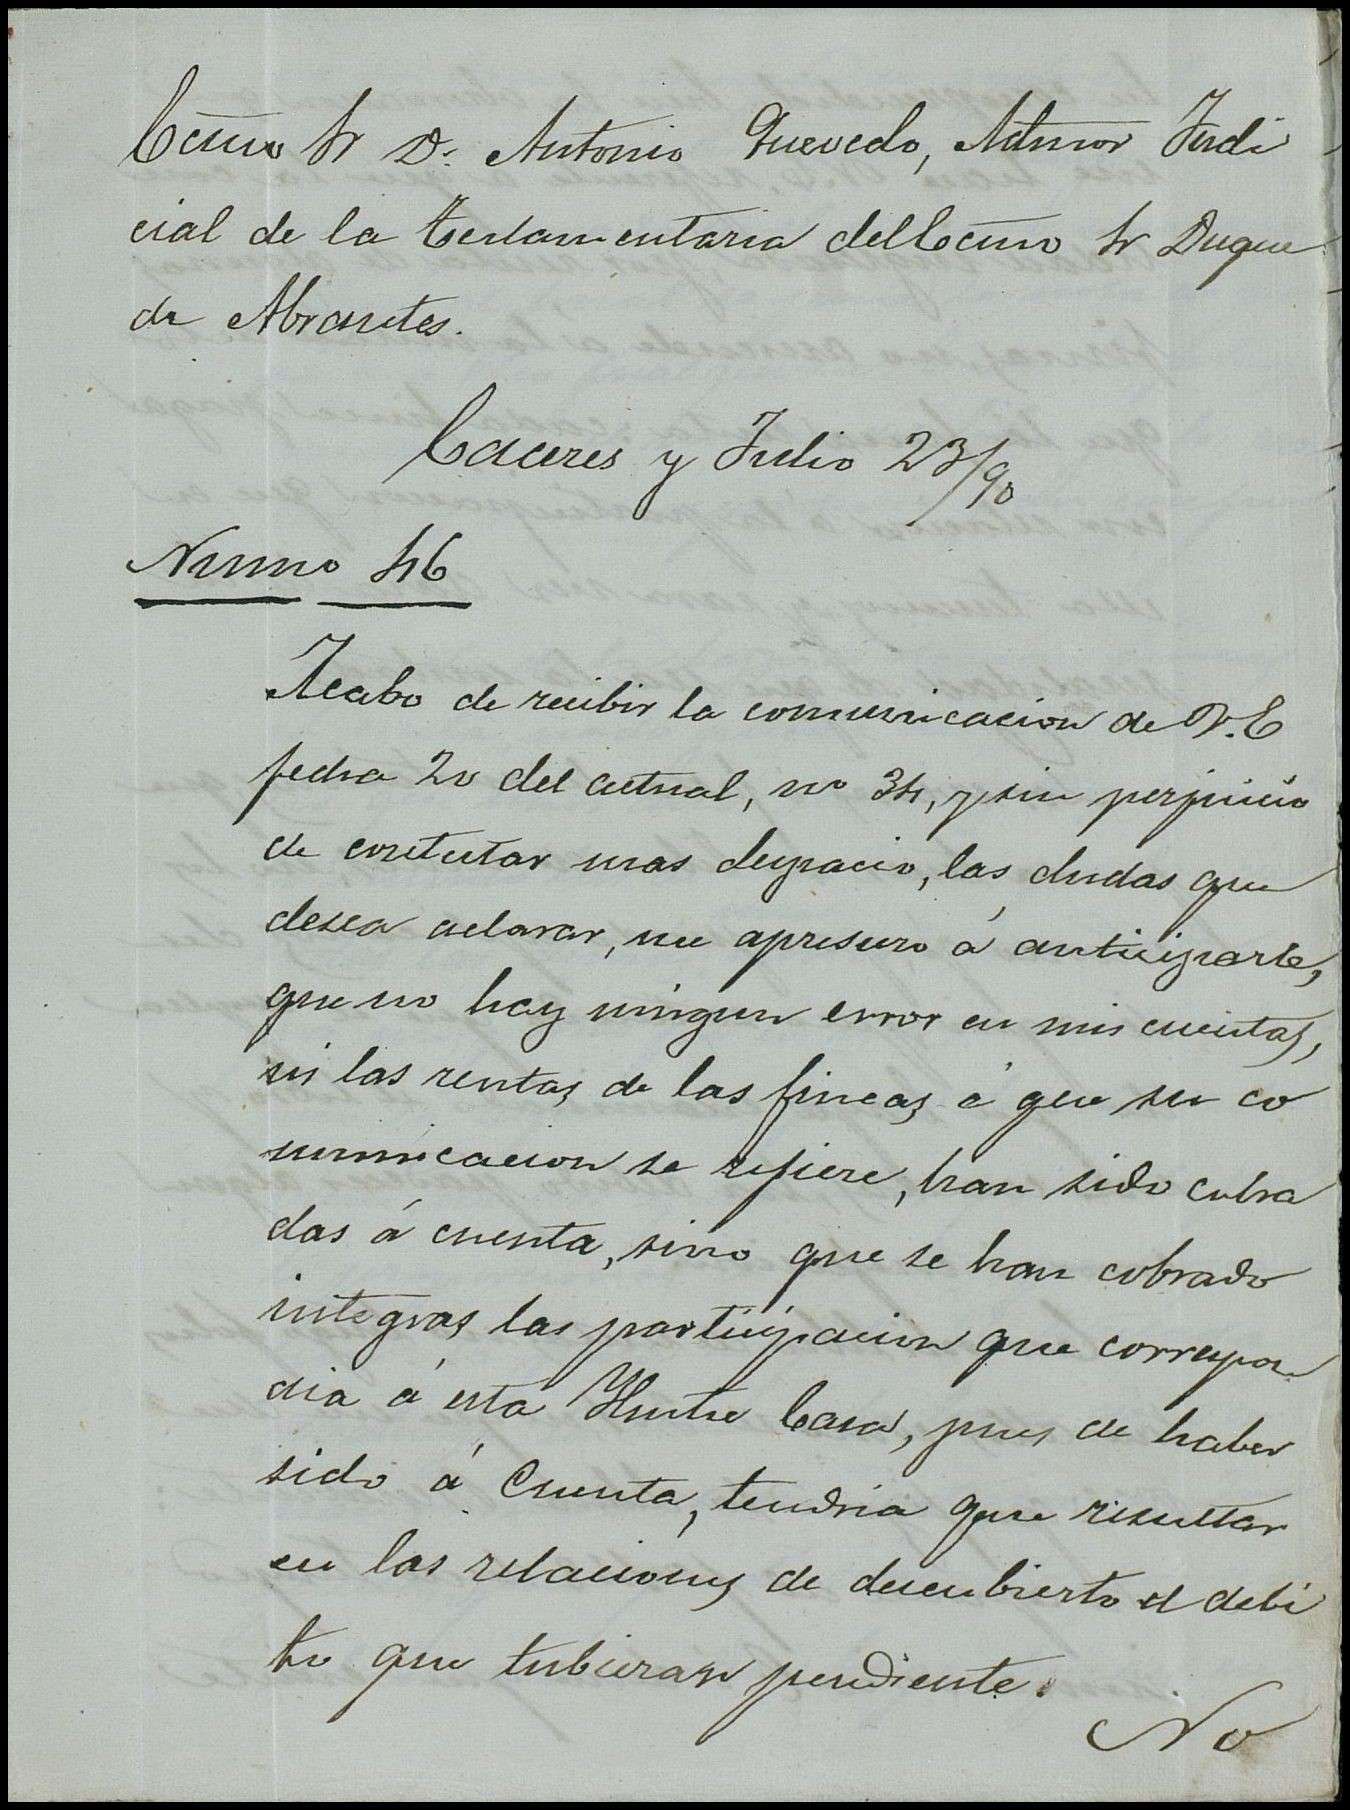 Ecsmo Sr D. Antonio Quevedo, Admor Judi
cial de la testamentaria del Ecsmo Sr Duque
de Abrantes.
Caceres y Julio 23/90
Numo 46
Acabo de recibir la comunicacion de V.E
fecha 20 del actual, nº 34, y sin perjuicio
de contestar mas despacio, las dudas que
desea aclarar, me apresuro á anticiparle,
que no hay ningun error en mis cuentas,
ni las rentas de las fincas á que su co
municacion se refiere, han sido cobra
das á cuenta, sino que se han cobrado
integras las participacion que correspon
dia á esta Ylustre Casa, pues de haber
sido á Cuenta, tendria que resultar
en las relaciones de descubierto el debi
to que tubieran pendiente.
No